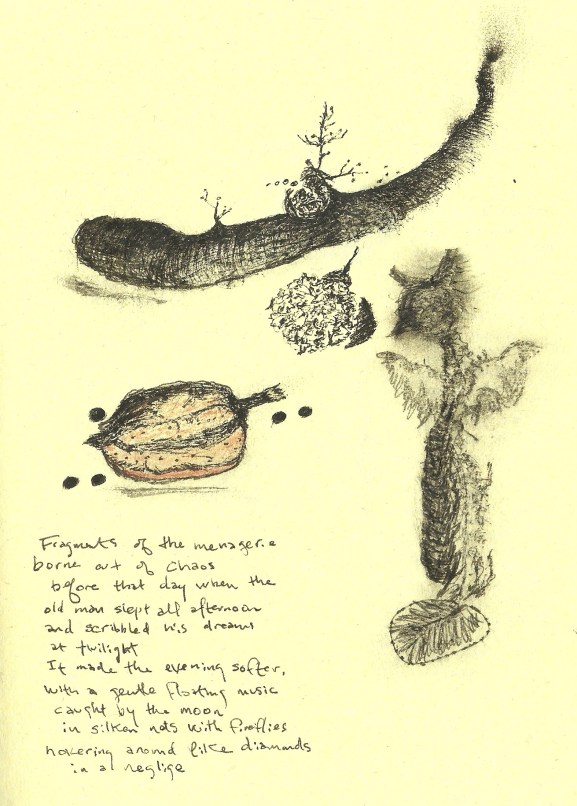 Fragments of the menagerie
borne out of Chaos
before that day when the
old man slept all afternoon
and scribbled his dreams
at twilight
It made the evening softer,
with a gentle floating music
caught by the moon
in silken nets with fireflies
hovering around like diamonds
in a neglige